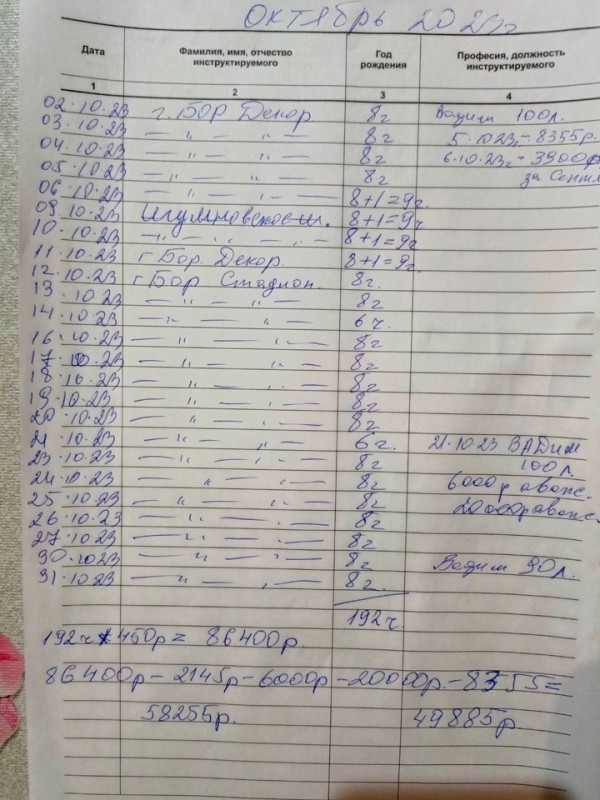 ОКТЯБРЬ 2023г
Дата Фамилия, имя, отчество инструктируемого Год рождения Професия, должность инструктируемого
1 2 3 4
02.10.23 г. Бор Декор. 8г Вадим 100л.
03.10.23 — " — " — 8г 5.10.23г - 8355р.
04.10.23 — " — " — 8г 6.10.23г - 3900р
05.10.23 — " — " — 8г за Сентя
06.10.23 — " — " — 8+1=9г.
09.10.23 8+1=9ч
10.10.23 — " — " — 8+1=9г
11.10.23 г Бор. Декор. 8+1=9г
12.10.23 г Бор Стадион. 8г.
13.10.23 — " — " — 8г
14.10.23 — " — " — 6ч.
16.10.23 — " — " — 8г
17.10.23 — " — " — 8г
18.10.23 — " — " — 8г
19.10.23 — " — " — 8г
20.10.23 — " — " — 8г
21.10.23 — " — " — 6г. 21.10.23 ВАДим
23.10.23 — " — " — 8г 100л.
24.10.23 — " — " — 8г 6000р аванс.
25.10.23 — " — " — 8г 20000р аванс.
26.10.23 — " — " — 8г
27.10.23 — " — " — 8г
30.10.23 — " — " — 8г Вадим 90л.
31.10.23 — " — " — 8г.
192ч
192ч * 450р = 86400р.
86400р - 2145р - 6000р - 20000р. - 8355 =
58255р. 49885р.